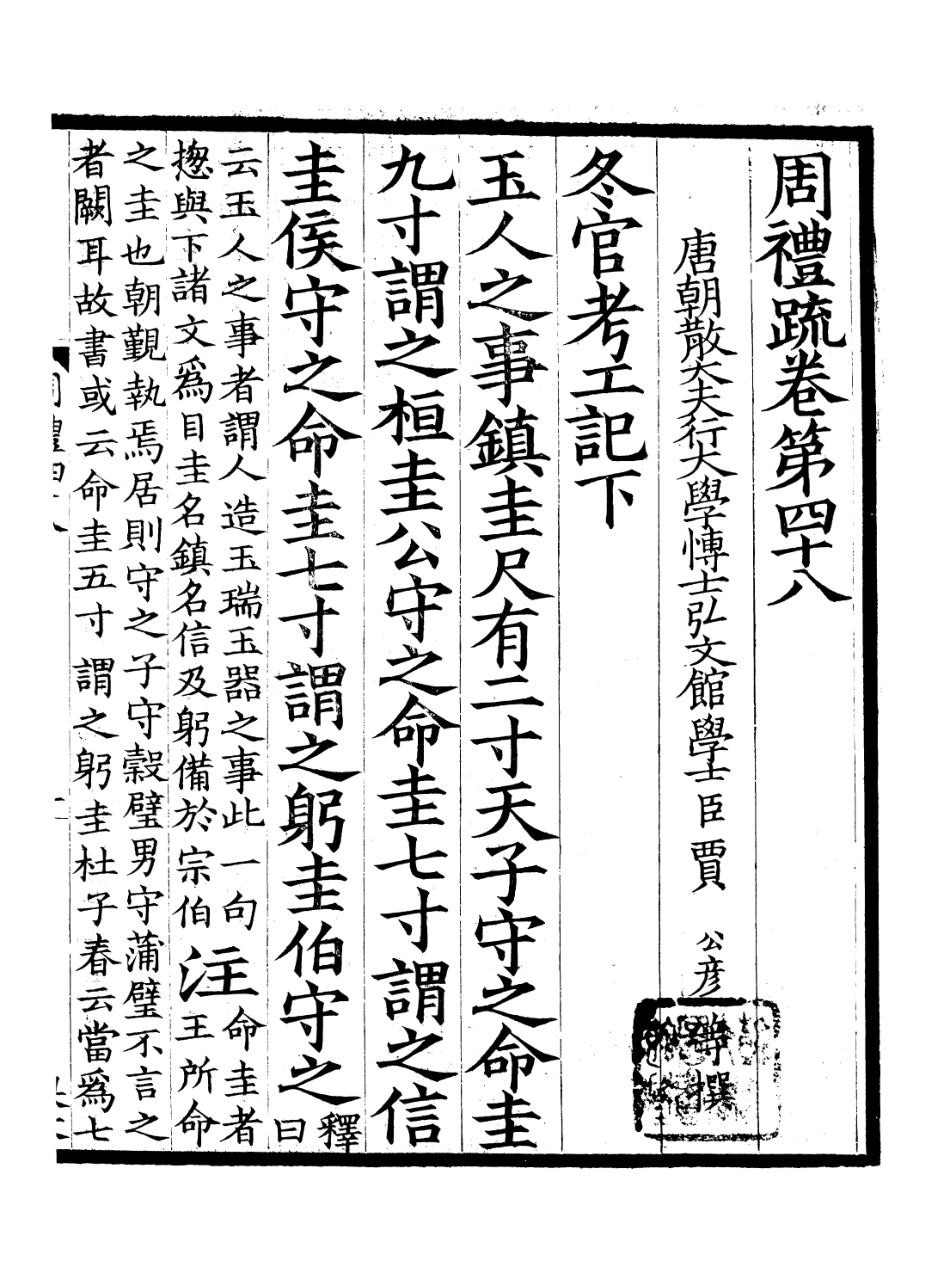 周禮疏卷第四十八
唐朝散大夫行大學愽士弘文館學士臣賈公彥等撰
冬官考工記下
玉人之事鎮圭尺有二寸天子守之命圭
九寸謂之桓圭公守之命圭七寸謂之信
圭侯守之命圭七寸謂之躬圭伯守之釋曰
云玉人之事者謂人造玉瑞玉器之事此一句
揔與下諸文爲目圭名鎮名信及躬備於宗伯注命圭者王所命
之圭也朝覲執焉居則守之子守穀璧男守蒲璧不言之
者闕耳故書或云命圭五寸謂之躬圭杜子春云當爲七